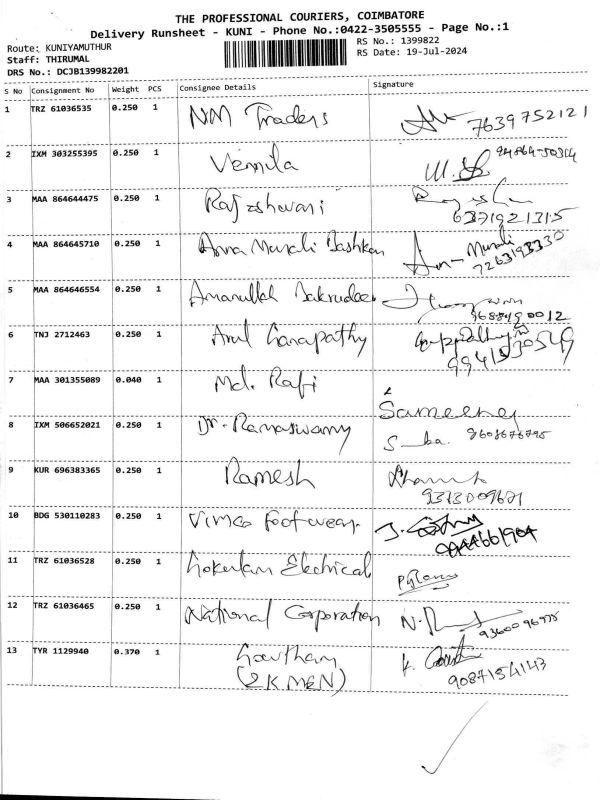 THE PROFESSIONAL COURIERS, COIMBATORE
Delivery Runsheet - KUNI - Phone No.:0422-3505555 - Page No.:1
Route: KUNIYAMUTHUR RS No.: 1399822
Staff: THIRUMAL RS Date: 19-Jul-2024
DRS No.: DCJB139982201
S No Consignment No Weight PCS Consignee Details Signature
1 TRZ 61036535 0.250 1 NM Traders 7639752121
2 IXM 303255395 0.250 1 Vennila
3 MAA 864644475 0.250 1 Rajeshwari
6371921315
4 MAA 864645710 0.250 1 Anna Murali Bashkan Murali
7263193330
5 MAA 864646554 0.250 1 Amanullah
6 TNJ 2712463 0.250 1 Arul Ganapathy
9941530549
7 MAA 301355089 0.040 1 Md. Rafi
8 IXM 506652021 0.250 1 Dr. Ramaswamy
9 KUR 696383365 0.250 1 Ramesh
10 BDG 530110283 0.250 1 Vimco Footwear
11 TRZ 61036528 0.250 1 Gokulam Electrical
12 TRZ 61036465 0.250 1 National Corporation
13 TYR 1129940 0.370 1 Gowtham
(2K MEN) 9087154143